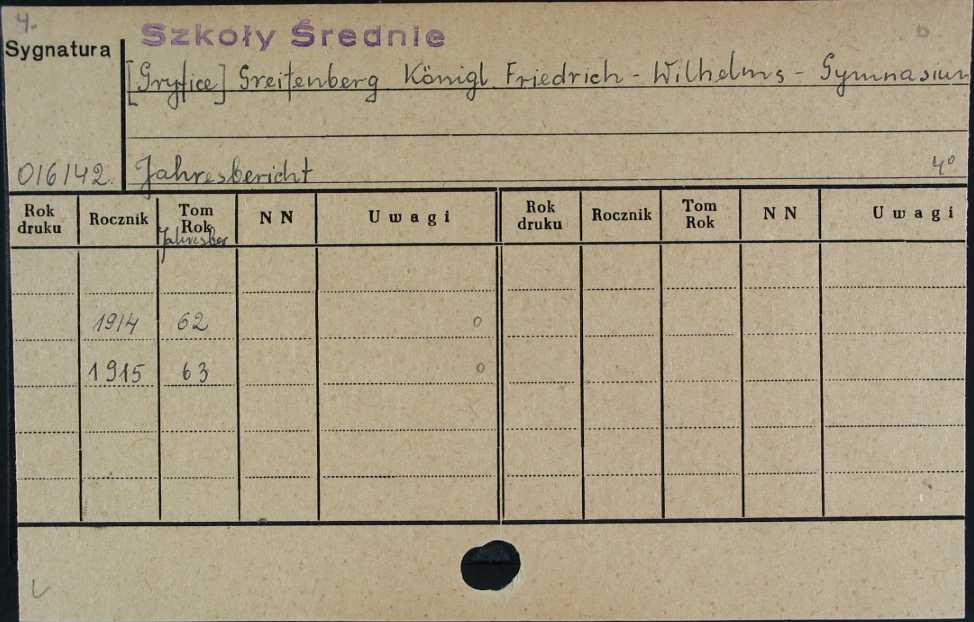 4.
Szkoły Średnie
Sygnatura
[Gryfice] Greifenberg Königl. Friedrich-Wilhelms-Gymnasium
016142. Jahresbericht 4°
Rok druku Rocznik Tom Rok N N Uwagi Rok druku Rocznik Tom Rok N N Uwagi
Jahresber
1914 62 0
1915 63 0